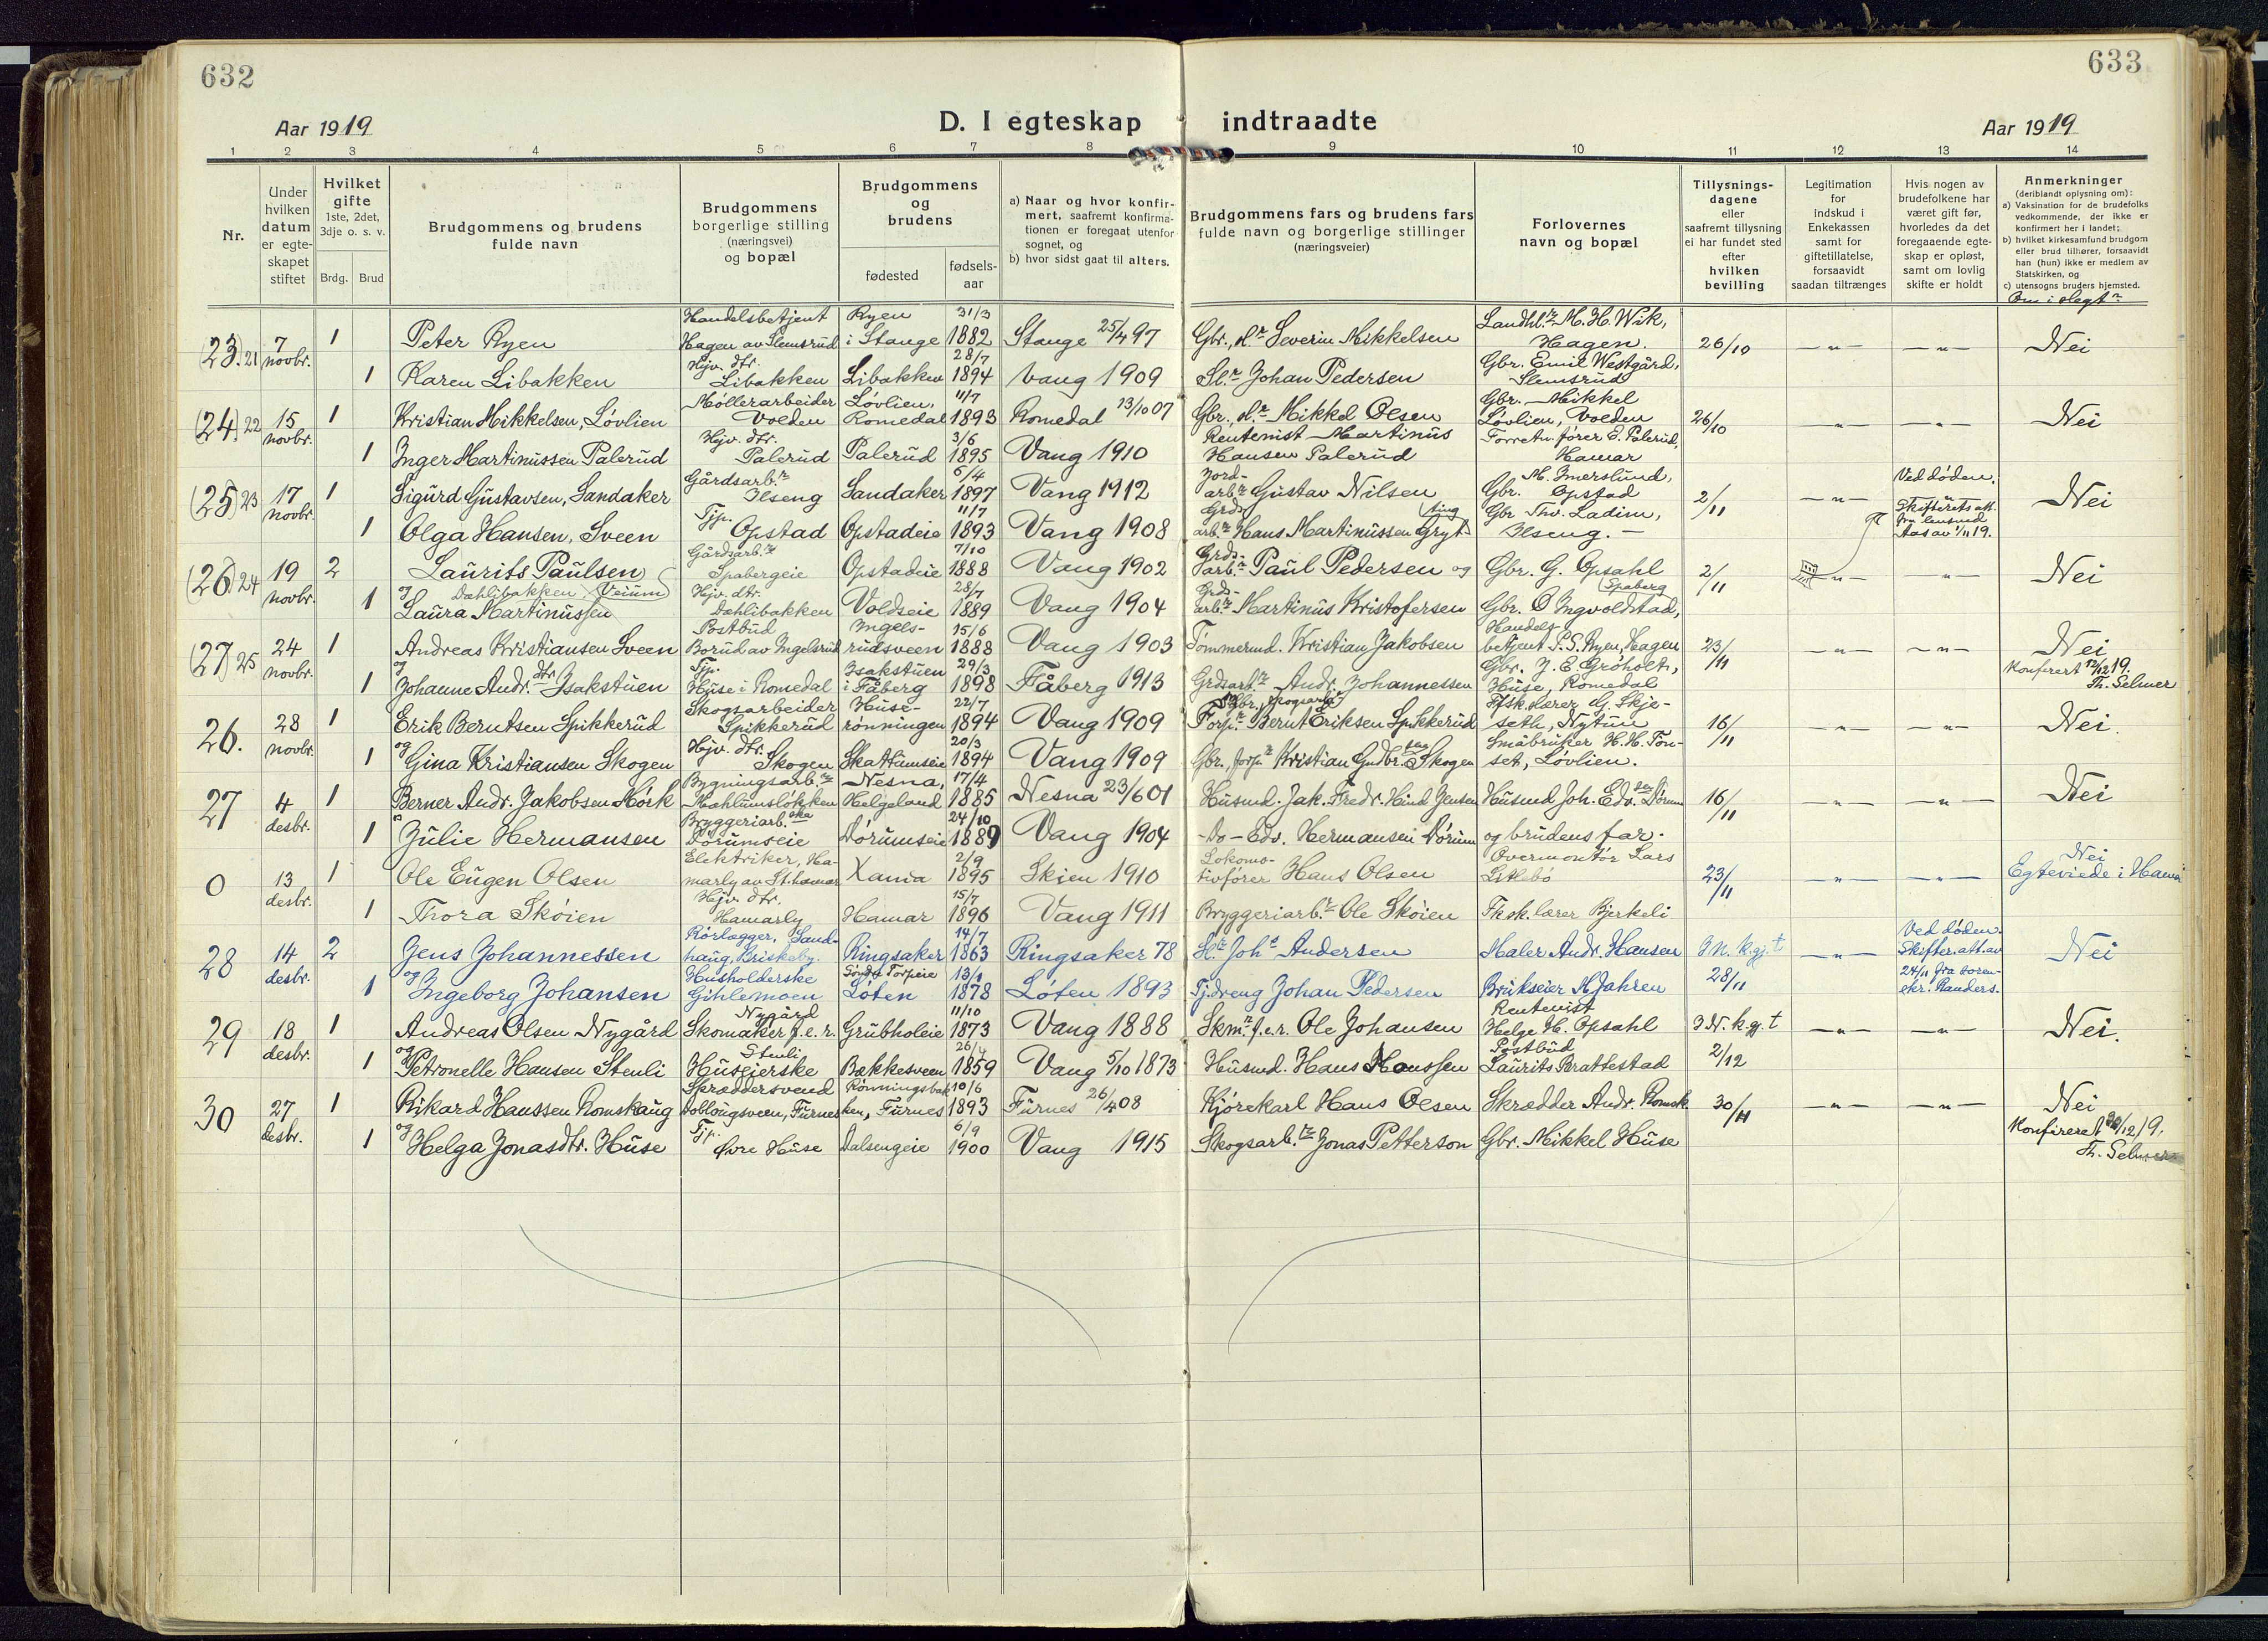 632
633
Aar 1919
D. I egteskap indtraadte
Aar 1919
1 2 3 4 5 6 7 8 9 10 11 12 13 14
Nr.
Under hvilken datum er egte-skapet stiftet
Hvilket gifte 1ste, 2det, 3dje o. s. v.
Brdg. Brud
Brudgommens og brudens fulde navn
Brudgommens borgerlige stilling (næringsvei) og bopæl
Brudgommens og brudens
fødested
fødsels-aar
a) Naar og hvor konfir-mert, saafremt konfirma-tionen er foregaat utenfor sognet, og
b) hvor sidst gaat til alters.
Brudgommens fars og brudens fars fulde navn og borgerlige stillinger (næringsveier)
Forlovernes navn og bopæl
Tillysnings-dagene eller saafremt tillysning ei har fundet sted efter hvilken bevilling
Legitimation for indskud i Enkekassen samt for giftetillatelse, forsaavidt saadan tiltrænges
Hvis nogen av brudefolkene har været gift før, hvorledes da det foregaaende egte-skap er opløst, samt om lovlig skifte er holdt
Anmerkninger (deriblandt oplysning om):
a) Vaksination for de brudefolks vedkommende, der ikke er konfirmert her i landet;
b) hvilket kirkesamfund brudgom eller brud tilhører, forsaavidt han (hun) ikke er medlem av Statskirken, og
c) utensogns bruders hjemsted.
Om i slegt
(23) 21 7 novbr. 1 Peter Ryen Handelsbetjent Hagen av Slemsrud Ryen i Stange 31/3 1882 Stange 25/4 97 Gbr., sl. Severin Mikkelsen Landhl. M. H. Wik, Hagen. 26/10 —"— —"— Nei
1 Karen Libakken Hjv. dtr. Libakken Libakken 28/7 1894 Vang 1909 Sl. Johan Pedersen Gbr. Emil Westgård, Slemsrud
(24) 22 15 novbr. 1 Kristian Mikkelsen, Løvlien Møllerarbeider Volden Løvlien, Romedal 11/7 1893 Romedal 13/10 07 Gbr., sl. Mikkel Olsen Gbr. Mikkel Løvlien, Volden 26/10 —"— —"— Nei
1 Inger Martinussen Palerud Hjv. dtr. Palerud Palerud 3/6 1895 Vang 1910 Rentenist Martinus Hansen Palerud Forretn.fører E. Palerud, Hamar
(25) 23 17 novbr. 1 Sigurd Gustavsen, Sandaker Gårdsarb. Ilseng Sandaker 6/4 1897 Vang 1912 Jord-arb. Gustav Nilsen Gbr. M. Imerslund, Opstad 2/11 —"— Ved døden. Nei
1 Olga Hansen, Sveen Tjp. Opstad Opstadeie 11/7 1893 Vang 1908 Grds.arb. Hans Martinussen Gryt-ting Gbr Thv. Ladim, Ilseng. — Skifterets att. fra lensmd Aas av 1/11 19.
(26) 24 19 novbr. 2 Laurits Paulsen Veium Gårdsarb. Spabergeie Opstadeie 7/10 1888 Vang 1902 Grds-arb. Paul Pedersen og Gbr. G. Opsahl 2/11 —"— —"— Nei
og 1 Laura Martinussen Dæhlibakken Hjv. dtr. Dæhlibakken Voldseie 28/7 1889 Vang 1904 Grds-arb. Martinus Kristofersen Gbr. O Ingvoldstad, Spaberg
(27) 25 24 novbr. 1 Andreas Kristiansen Sveen Postbud Borud av Ingelsrud Ingels-rudsveen 15/6 1888 Vang 1903 Tømmermd. Kristian Jakobsen Handels-betjent P. S. Ryen, Hagen 23/11 —"— —"— Nei
og 1 Johanne Andr.dtr. Isakstuen Tjp. Huse i Romedal Isakstuen i Fåberg 29/3 1898 Fåberg 1913 Grdsarb. Andr. Johannessen Gbr. J. E. Grøholt, Huse, Romedal Konfirert 12/12 19. Th. Selmer
26. 28 novbr. 1 Erik Berntsen Spikkerud Skogsarbeider Spikkerud Huse-rønningen 22/7 1894 Vang 1909 Forp. Bernt Eriksen Spikkerud Ffsk.lærer G. Skje-seth, Nytun 16/11 —"— —"— Nei.
og 1 Gina Kristiansen Skogen Hjv. dtr. Skogen Skattumseie 20/3 1894 Vang 1909 Gbr., forp. Kristian Gudbr. Skogen Småbruker H. H. Ton-set, Løvlien.
27 4 desbr. 1 Berner Andr. Jakobsen Mørk Bygningsarb. Mæhlumsløkken Nesna, Helgeland 17/4 1885 Nesna 23/6 01 Husmd. Jak. Fredr. Hind Jensen Husmd Joh. Edv. Dørum 16/11 —"— —"— Nei
1 Julie Hermansen Bryggeriarb.ske Dørumseie Dørumseie 24/10 1889 Vang 1904 -Do- Edv. Hermansen Dørum og brudens far.
0 13 desbr. 1 Ole Eugen Olsen Elektriker, Ha-marly av St.hamar Xania 2/9 1895 Skien 1910 Lokomo-tivfører Hans Olsen Overmontør Lars Litlebø 23/11 —"— —"— Nei Egteviede i Hamar
1 Thora Skøien Hjv. dtr. Hamarly Hamar 15/7 1896 Vang 1911 Bryggeriarb. Ole Skøien Fksk.lærer Bjerkeli
28 14 desbr. 2 Jens Johannessen Rørlægger, Sand-haug, Briskeby. Ringsaker 14/7 1863 Ringsaker 78 Sl. Joh. Andersen Maler Andr. Hansen 3 N. k.gj.t —"— Ved døden. Skifter.att. av 24/11 fra soren-skr. Randers. Nei
og 1 Ingeborg Johansen Husholderske Gihlemoen Søndre Torpeie Løten 13/1 1878 Løten 1893 Tj.dreng Johan Pedersen Brukseier A Jahren 28/11
29 18 desbr. 1 Andreas Olsen Nygård Nygård Skomaker f.e.r. Grubholeie 11/10 1873 Vang 1888 Skm. f.e.r. Ole Johansen Rentenist Helge H. Opsahl 3 N. k.gj.t —"— —"— Nei.
og 1 Petronelle Hansen Stenli Stenli Huseierske Bækkesveen 26/4 1859 Vang 5/10 1873 Husmd. Hans Hanssen Postbud Laurits Brattestad 2/12
30 27 desbr. 1 Rikard Hanssen Romskaug Skræddersvend Doblougsveen, Furnes Rønningsbak-ken, Furnes 10/6 1893 Furnes 26/4 08 Kjørekarl Hans Olsen Skrædder Andr. Romsk. 30/11 —"— —"— Nei
og 1 Helga Jonasdtr. Huse Tjp. Øvre Huse Dalsengeie 6/9 1900 Vang 1915 Skogsarb. Jonas Petterson Gbr. Mikkel Huse Konfirert 30/12 19. Th. Selmer